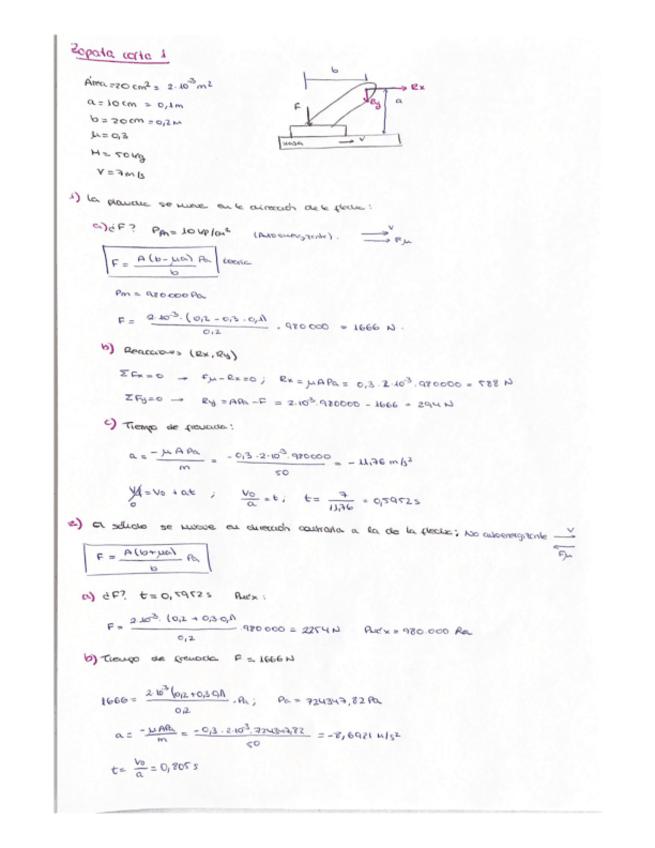 Zapata corta 1
Área = 20 cm² = 2·10⁻³ m²
a = 10 cm = 0,1m
b = 20 cm = 0,2m
μ = 0,3
M = 50 kg
V = 7 m/s
b
F
Rx
Ry
a
masa
V
1) La planche se mueve en la dirección de la flecha:
a) ¿F? Pm = 10 kp/cm² (Autoenergizante). V
Fμ
F = A(b-μa) Pa / b
Pm = 980000 Pa
F = 2·10⁻³·(0,2 - 0,3·0,1) / 0,2 · 980000 = 1666 N.
b) Reacciones (Rx, Ry)
ΣFx=0 → Fμ-Rx=0; Rx = μAPa = 0,3·2·10⁻³·980000 = 588 N
ΣFy=0 → Ry = APa - F = 2·10⁻³·980000 - 1666 = 294 N
c) Tiempo de frenada:
a = -μAPa / m = -0,3·2·10⁻³·980000 / 50 = -11,76 m/s²
Vf = Vo + at ; Vo / a = t; t = 7 / 11,76 = 0,5952 s
0
2) El sólido se mueve en dirección contraria a la de la flecha; No autoenergizante V
Fμ
F = A(b+μa) / b Pa
a) ¿F? t = 0,5952 s Pmáx:
F = 2·10⁻³·(0,2 + 0,3·0,1) / 0,2 · 980000 = 2254 N Pmáx = 980.000 Pa
b) Tiempo de frenada F = 1666 N
1666 = 2·10⁻³(0,2+0,3·0,1) / 0,2 · Pa; Pa = 724347,82 Pa
a = -μAPa / m = -0,3·2·10⁻³·724347,82 / 50 = -8,6921 m/s²
t = Vo / a = 0,805 s